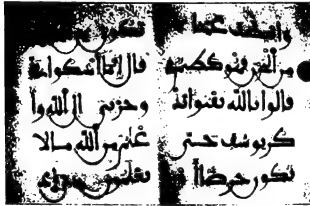 وابيضت عينا
من الحزن فهو كظيم
قالوا تالله تفتوا تذ
كر يوسف حتى
تكون حرضا أو
تكون
قال إنما أشكوا
وحزني الى الله وا
علم من الله ما لا
تعلمون